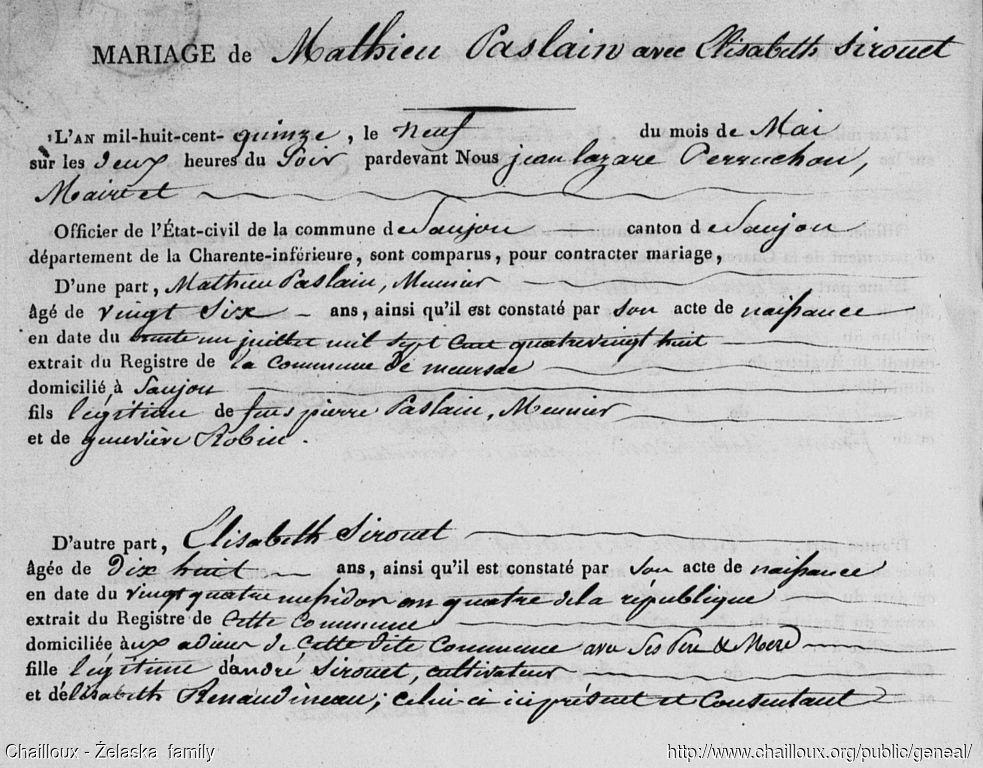 MARIAGE de Mathieu Paslain avec Elisabeth Sirouet
L'AN mil-huit-cent-quinze, le neuf du mois de Mai
sur les deux heures du Soir pardevant Nous jean lazare Perruchon,
Maire et
Officier de l'État-civil de la commune de Saujon canton de Saujon
département de la Charente-inférieure, sont comparus, pour contracter mariage,
D'une part, Mathieu Paslain, Meunier
âgé de vingt Six ans, ainsi qu'il est constaté par son acte de naissance
en date du trente un juillet mil sept Cent quatrevingt huit
extrait du Registre de la Commune de meursac
domicilié à Saujon
fils légitime de feus pierre Paslain, Meunier
et de geneviève Robin.
D'autre part, Elisabeth Sirouet
âgée de Dix huit ans, ainsi qu'il est constaté par son acte de naissance
en date du vingt quatre messidor an quatre de la république
extrait du Registre de Cette Commune
domiciliée à de Cette dite Commune avec Ses Pere & Mere
fille légitime d'andré Sirouet, cultivateur
et d'élisabeth Renaudineau; celui-ci ici présent et Consentant
Chailloux - Żelaska family
http://www.chailloux.org/public/geneal/